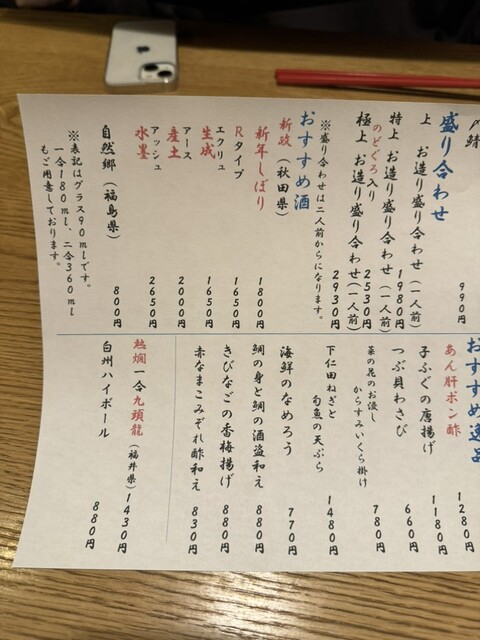 〆鯖
990円
盛り合わせ
上 お造り盛り合わせ（一人前）
1980円
特上 お造り盛り合わせ（一人前）
2530円
のどぐろ入り
極上 お造り盛り合わせ（一人前）
2930円
※盛り合わせは二人前からになります。
おすすめ酒
新政（秋田県）
新年しぼり
1800円
Rタイプ
1650円
エクリュ
生成
1650円
アース
産土
2000円
アッシュ
水墨
2650円
自然郷（福島県）
800円
※表記はグラス90mlです。
一合180ml、二合360ml
もご用意しております。
おすすめ逸品
あん肝ポン酢
1280円
子ふぐの唐揚げ
1180円
つぶ貝わさび
660円
菜の花のお浸し
からすみいくら掛け
780円
下仁田ねぎと
旬魚の天ぷら
1480円
海鮮のなめろう
770円
鯛の身と鯛の酒盗和え
880円
きびなごの香梅揚げ
880円
赤なまこみぞれ酢和え
830円
熱燗一合 九頭龍（福井県）
1430円
白州ハイボール
880円